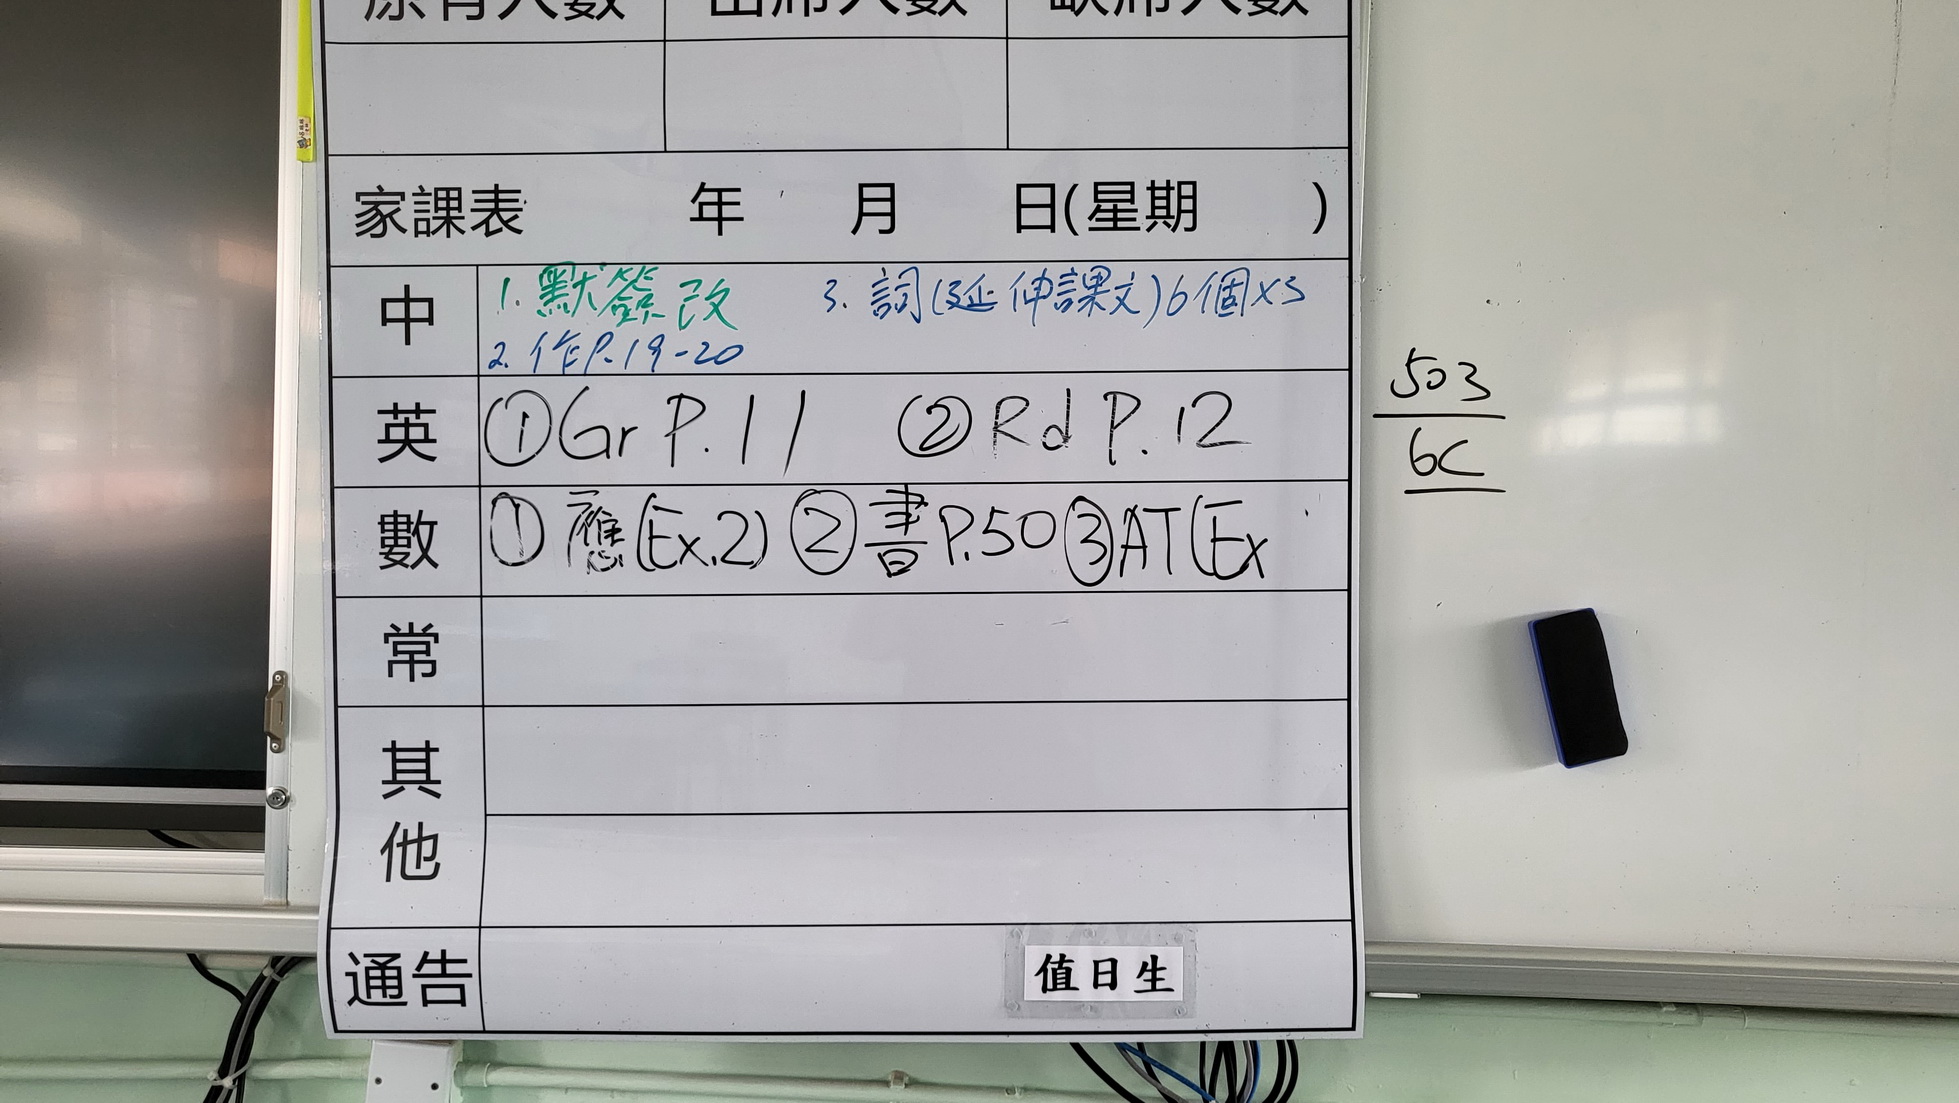 原有人數 出席人數 缺席人數
家課表 年 月 日(星期 )
中 1. 默簽改 3. 詞(延伸課文)6個x3
2. 作P.19-20
英 ①Gr P.11 ②Rd P.12
數 ①應(Ex.2) ②書P.50 ③AT(Ex
常
其他
通告 值日生
503
6C